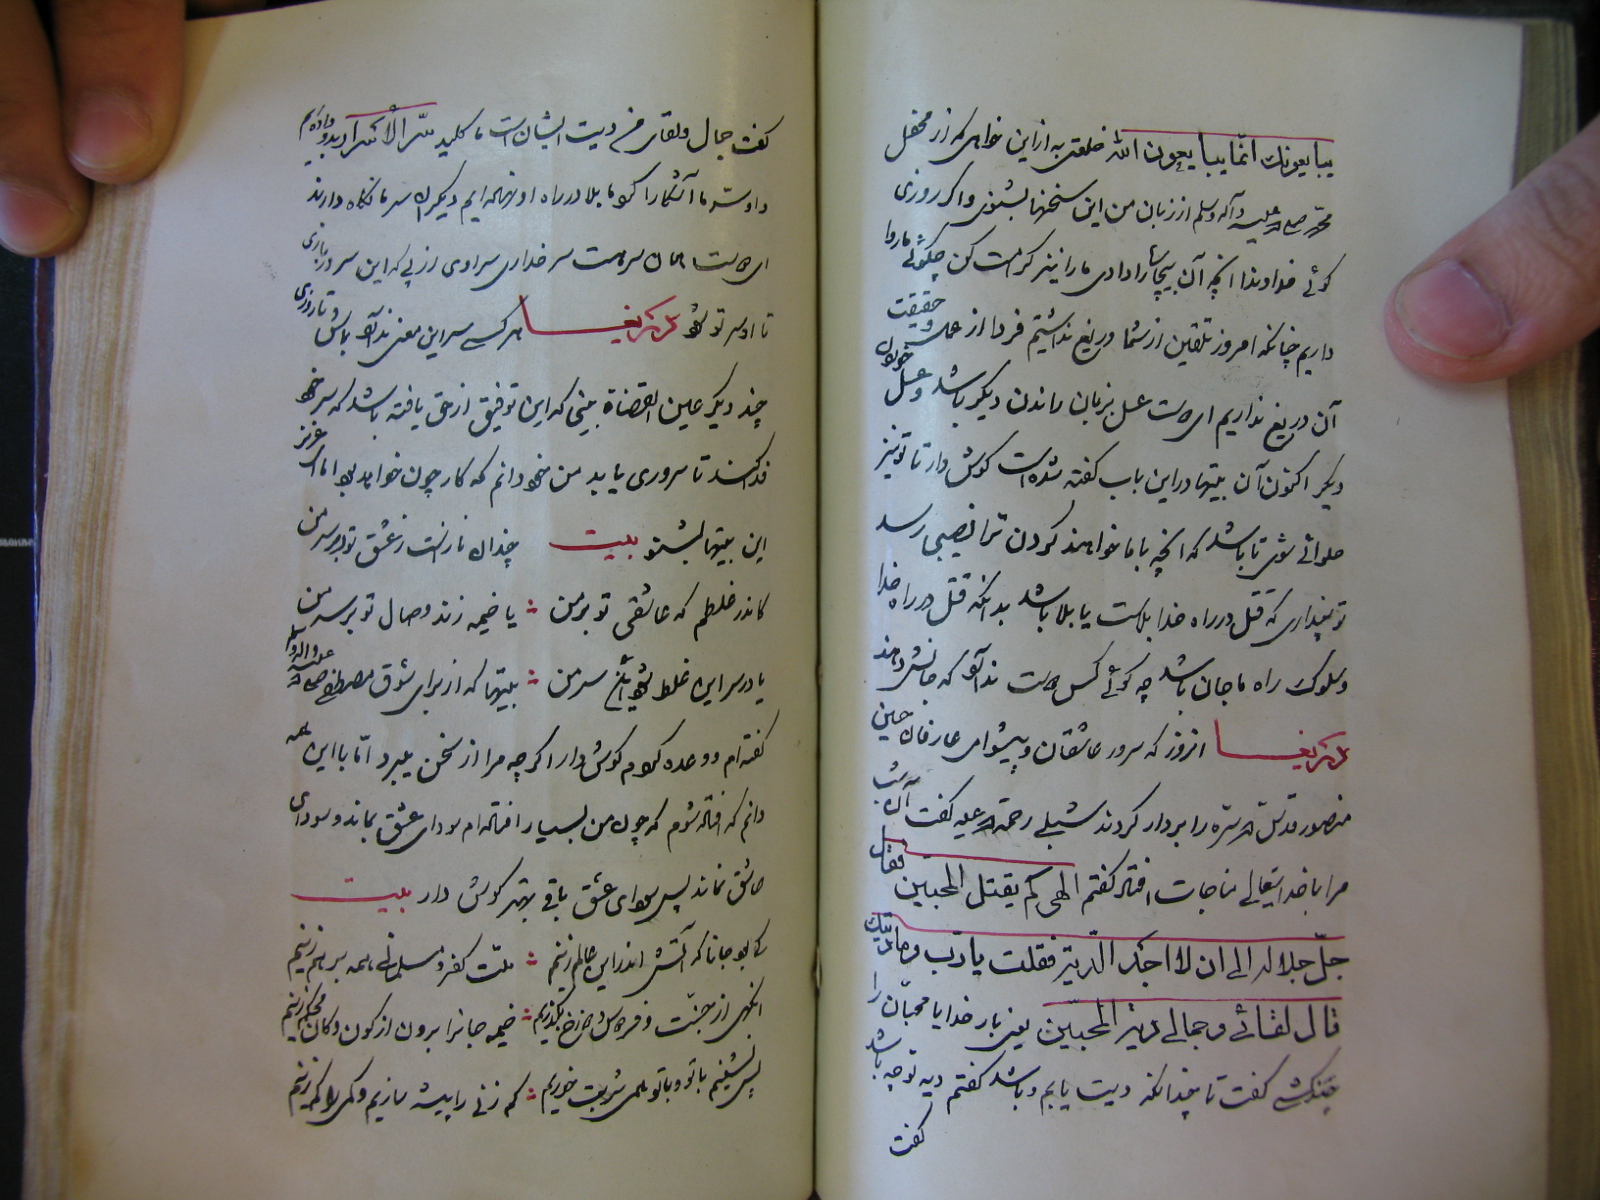 یبایعونک انّما یبایعون الله خلعتی به از این خواهی که از محفل
محمّد صلی الله علیه و آله وسلم از زبان من این سخنها بشنوی و اگر روزی
گوئی خداوندا آنچه آن بیچاره را دادی ما را نیز کرامت کن چگوئی ما روا
داریم چنانکه امروز تلقین از شما دریغ نداشتیم فردا از عمل و حقیقت
آن دریغ نداریم ای دوست عسل بزبان راندن دیگر باشد و عسل خوردن
دیگر اکنون آن بیتها در این باب گفته شده است گوش دار تا تو نیز
حلوائی شوی تا باشد که آنچه با ما خواهند کردن ترا نصیبی رسد
تو پنداری که قتل در راه خدا بلاست یا بلا باشد بدانکه قتل در راه خدا
و سلوک راه ما جان باشد چه گوئی کس دوست ندارد که جانش دهند
ای عزیز آن روز که سرور عاشقان و پیشوای عارفان حسین
منصور قدّس الله سرّه را بردار کردند شبلی رحمة الله علیه گفت آن شب
مرا با خدایتعالی مناجات افتاد گفتم الهی کم یقتل المحبین فقال
جلّ جلاله الی ان لا اجد الدّیة فقلت یا ربّ وما دیتک
قال لقائی و جمالی دیة المحبّین یعنی بار خدایا محبّان را
چند کشی گفت تا چندانکه دیت یابم و باشد گفتم دیه تو چه باشد
گفت
گفت جمال و لقای من دیت ایشان است ما کلید سرّ الاسرار بدو داده‌ایم
داوسر ما آشکارا کرد ما بلا در راه او نهاده ایم دیگران سر ما نگاه دارند
ای دوست هان سر چیست سر خداری سر او ی رزپی که این سر در بازی
تا او سر تو شود ای عزیز هر کسی سر این معنی ندارد باش تا روزی
چند دیگر عین القضاة بینی که این توفیق از حق یافته باشد که سر خود
فدا کند تا سروری یابد من خود دانم که کار چون خواهد بود اما ای عزیز
این بیتها بشنو بیت چندان ناز است ز عشق تو در سر من
کاندر غلطم که عاشقی تو بر من یا خیمه زند وصال تو بر سر من
یا در سر این غلط شود این سر من بیتها که از برای شوق مصطفی صلی الله علیه و آله وسلم
گفته ام و وعده کرده‌ام گوش دار اگر چه مرا از سخن میبرد امّا با این همه
دانم که افتاده شوم که چون من بسیار افتاده ام سودای عشق بماند و سودای
عاشق نماند پس سودای عشق باقی بهتر گوش دار بیت
کی بود جانا که آتش اندر این عالم زنیم ملّت کفر و مسلمانی همه بر هم زنیم
آنگهی از جنّت و فردوس و دوزخ بگذریم خیمه جانرا برون از کون و کان محکم زنیم
پس نشینم با تو و با تو همی شربت خوریم کم زنی را پیشه سازیم و کمی را کم زنیم